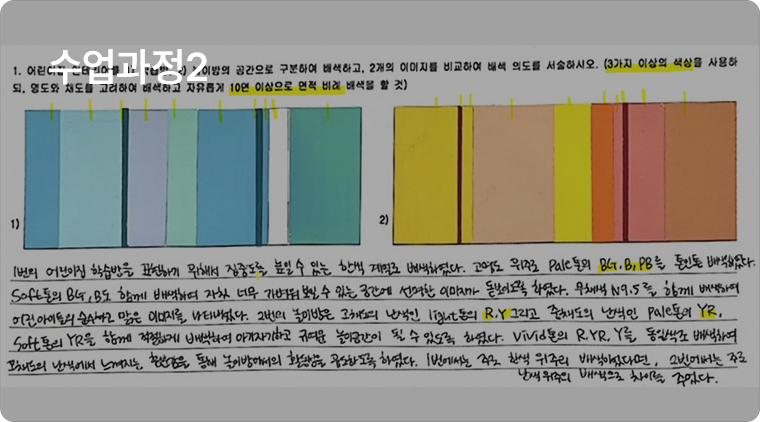 수업과정2
1. 어린이집 인테리어를 1) 학습방 2) 놀이방의 공간으로 구분하여 배색하고, 2개의 이미지를 비교하여 배색 의도를 서술하시오. (3가지 이상의 색상을 사용하
되, 명도와 채도를 고려하여 배색하고 자유롭게 10면 이상으로 면적 비례 배색을 할 것)
1)
2)
1번의 어린이집 학습방을 표현하기 위해서 집중도를 높일 수 있는 한색 계열로 배색하였다. 고명도 위주로 Pale톤의 BG, B, PB를 톤인톤 배색하였다.
Soft톤의 BG, B도 함께 배색하여 자칫 너무 가벼워 보일 수 있는 공간에 선명한 이미지가 돋보이도록 하였다. 무채색 N9.5를 함께 배색하여
어린아이들의 순수하고 맑은 이미지를 나타내었다. 2번의 놀이방은 고채도의 난색인 light톤의 R, Y 그리고 중채도의 난색인 Pale톤의 YR,
Soft톤의 YR을 함께 적절하게 배색하여 아기자기하고 귀여운 놀이공간이 될 수 있도록 하였다. Vivid톤의 R, YR, Y를 동일색조 배색하여
고채도의 난색에서 느껴지는 흥분감을 통해 놀이방에서의 활동성을 강조하도록 하였다. 1번에서는 주로 한색 위주의 배색이었다면, 2번에서는 주로
난색 위주의 배색으로 차이를 주었다.